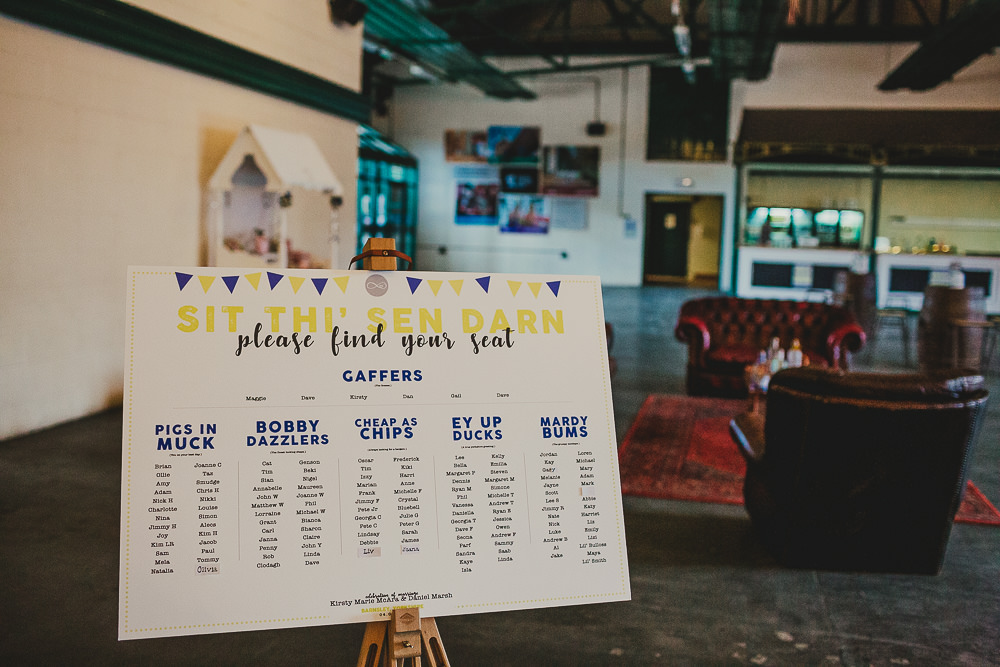 SIT THI' SEN DARN
please find your seat
GAFFERS
Maggie Dave Kirsty Dan Gail Dave
PIGS IN
MUCK
Brian Joanne C
Ollie Tas
Amy Smudge
Adam Chris H
Nick H Nikki
Charlotte Louise
Nina Simon
Jimmy H Alecs
Joy Kim H
Kim LR Jacob
Sam Paul
Mela Tommy
Natalia Olivia
BOBBY
DAZZLERS
Cat Genson
Tim Beki
Sian Nigel
Annabelle Maureen
John W Joanne W
Matthew W Phil
Lorraine Michael W
Grant Bianca
Carl Sharon
Janna Claire
Penny John Y
Rob Linda
Clodagh Dave
CHEAP AS
CHIPS
Oscar Frederick
Tim Kiki
Issy Harri
Marian Anne
Frank Michelle F
Jimmy F Crystal
Pete Jr Bluebell
Georgia C Julie G
Pete C Peter G
Lindsay Sarah
Debbie James
Liv Juana
EY UP
DUCKS
Lee Kelly
Bella Emilia
Margaret F Steven
Dennis Margaret M
Ryan M Simone
Phil Michelle T
Vanessa Andrew T
Daniella Ryan S
Georgia T Jessica
Dave F Owen
Seona Andrew F
Parf Sammy
Sandra Saab
Kaye Linda
Isla
MARDY
BUMS
Jordan Loren
Kay Michael
Gary Mary
Melanie Adam
Jayne Mark
Scott
Lee S Abbie
Jimmy R Katy
Nate Harriet
Nick Lis
Luke Emily
Andrew B Lisi
Al Lil' Sulloss
Jake Maya
Lil' Smith
celebration of marriage
Kirsty Marie McAra & Daniel Marsh
BARNSLEY